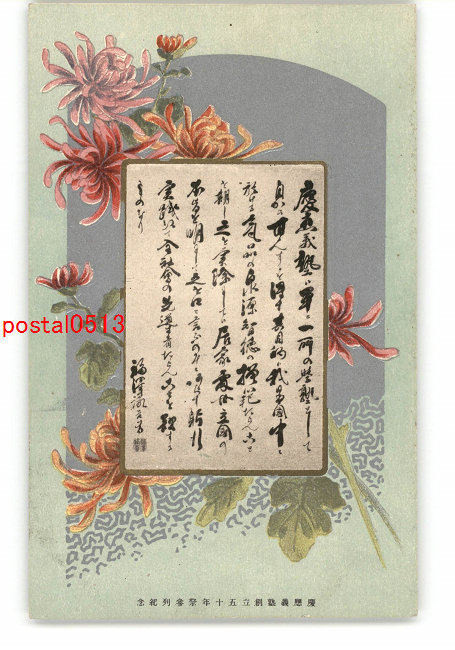 慶應義塾ハ單ニ一所の學塾として
自から甘んずるを得ず其目的ハ我日本國中ニ
於ける氣品の泉源智德の模範たらんことを
期し之を實際にしてハ居家處世立國の
本旨を明にして之を口に言ふのみにあらず躬行
實踐以て全社會の先導者たらんことを欲する
ものなり
福澤諭吉書
慶應義塾創立五十年祭參列紀念
postal0513